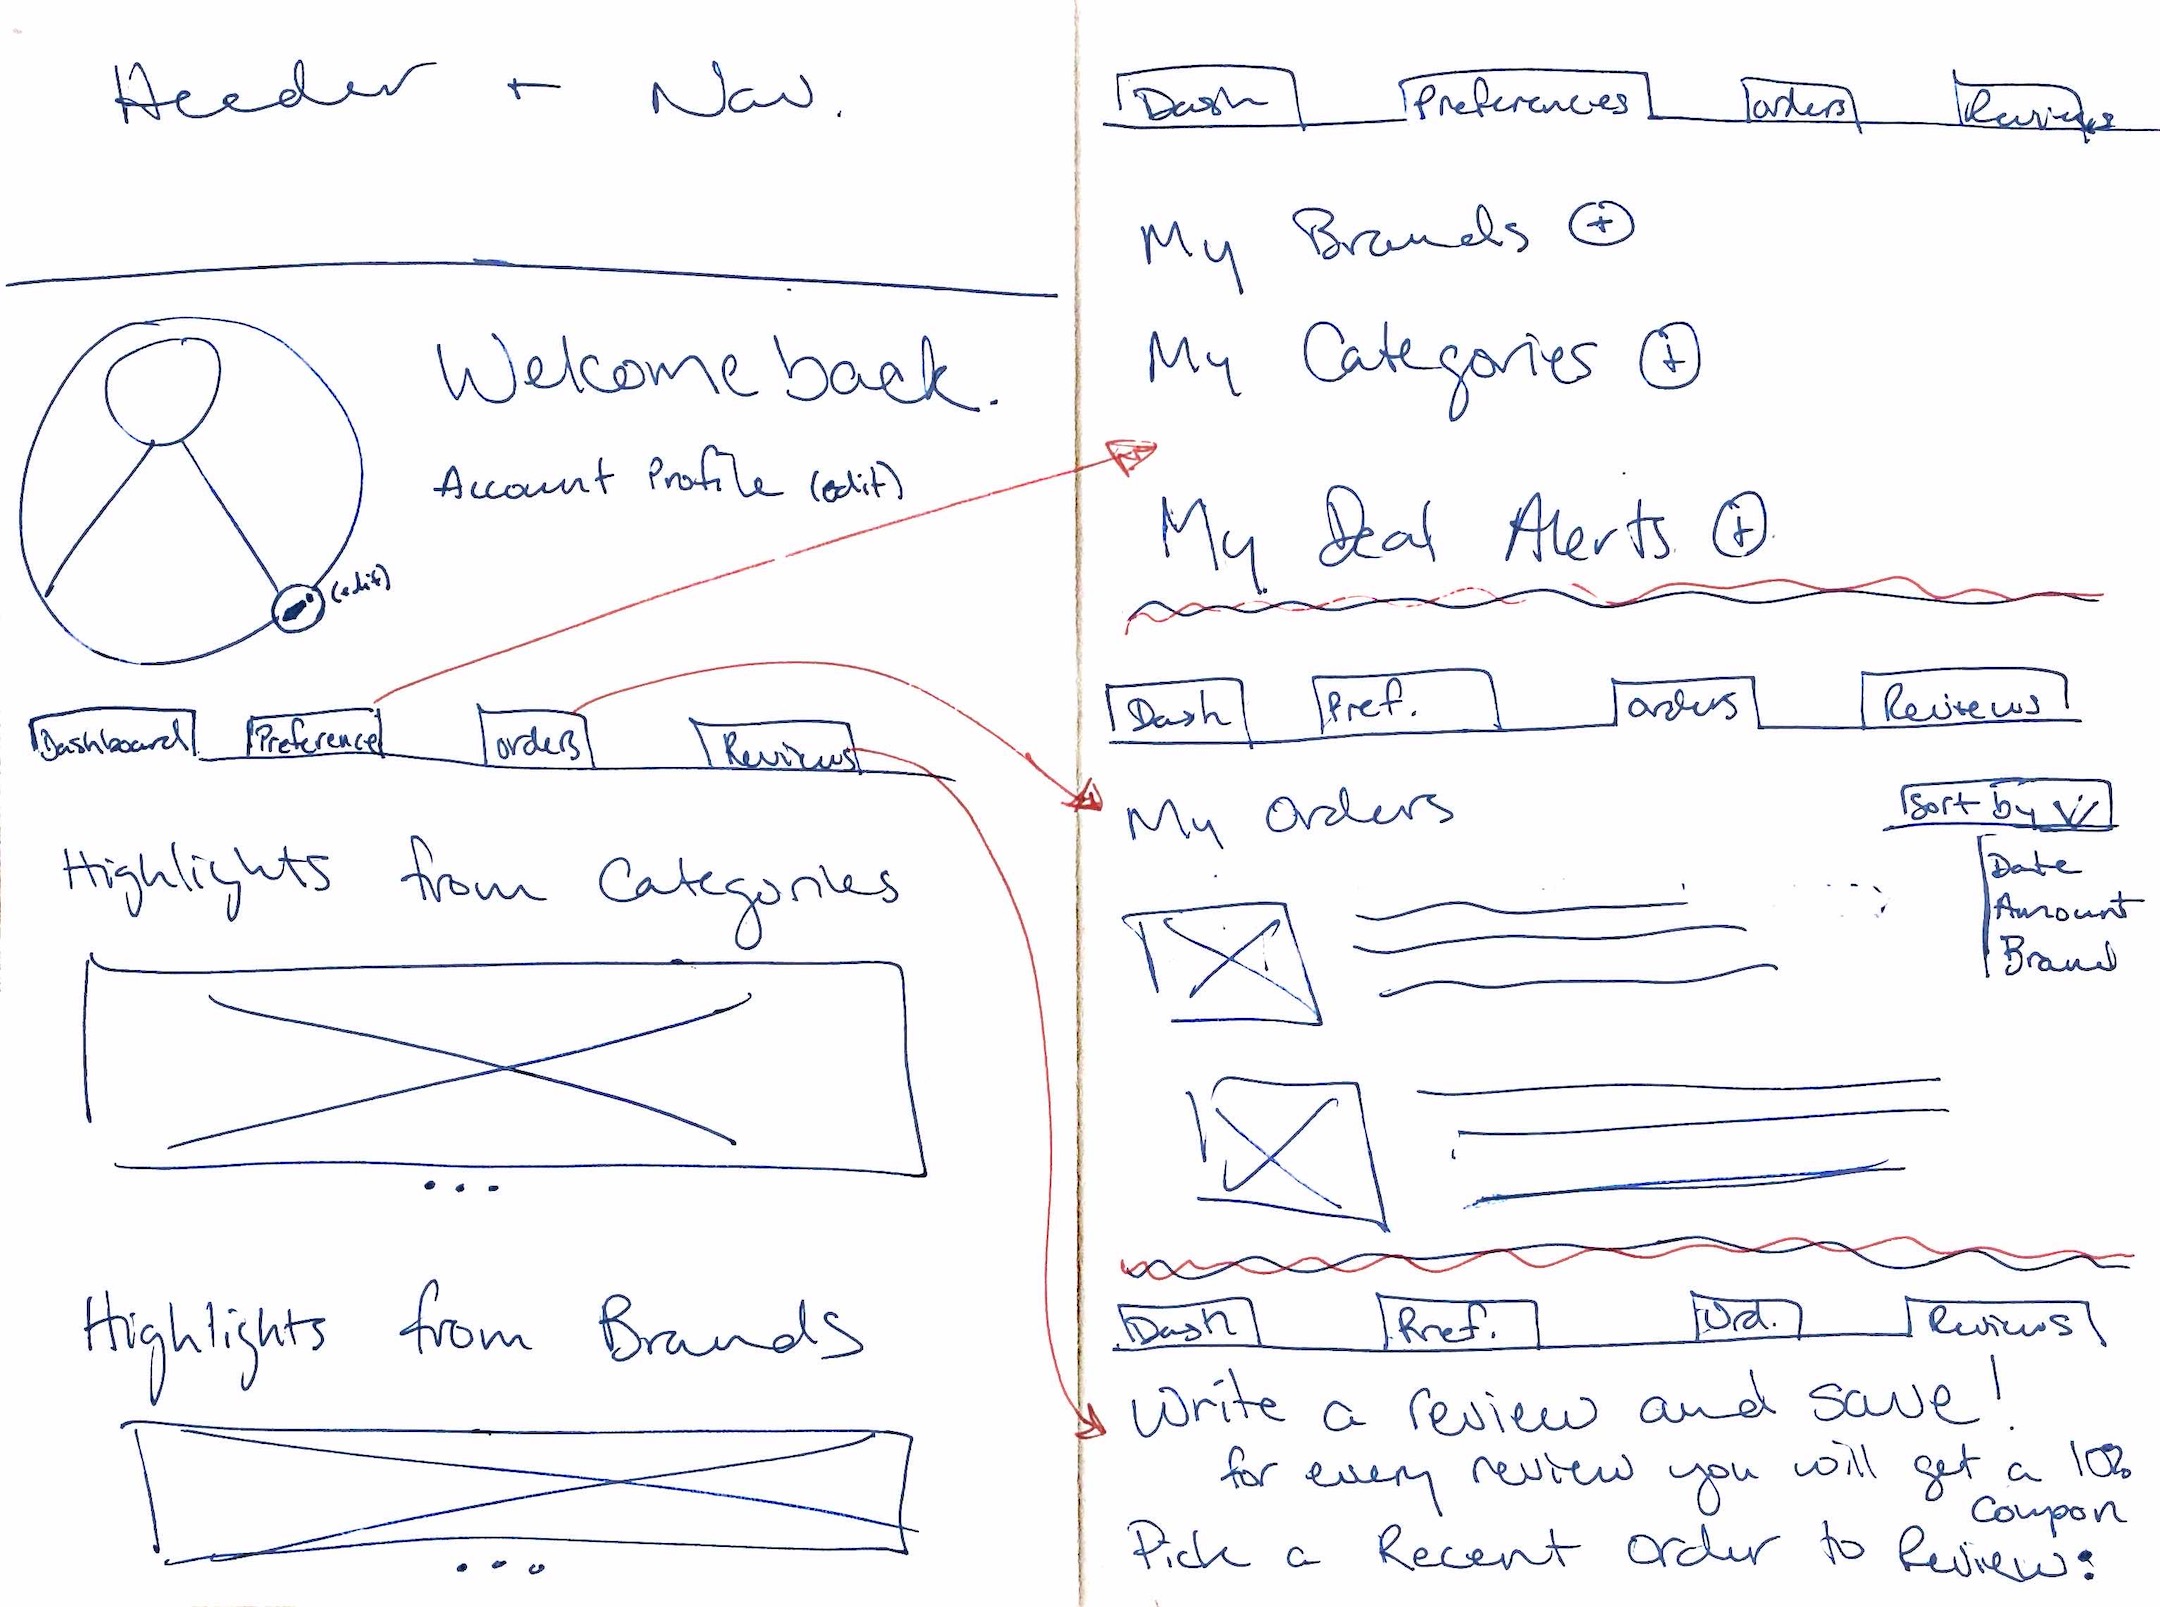 Header + Nav.
Welcome back.
Account Profile (edit)
(edit)
Dashboard Preference orders Reviews
Highlights from Categories
...
Highlights from Brands
...
Dash Preferences orders Reviews
My Brands +
My Categories +
My Deal Alerts +
Dash Pref. orders Reviews
My orders
Sort by
Date
Amount
Brand
Dash Pref. Ord. Reviews
Write a review and save!
for every review you will get a 10%
Coupon
Pick a Recent order to Review: